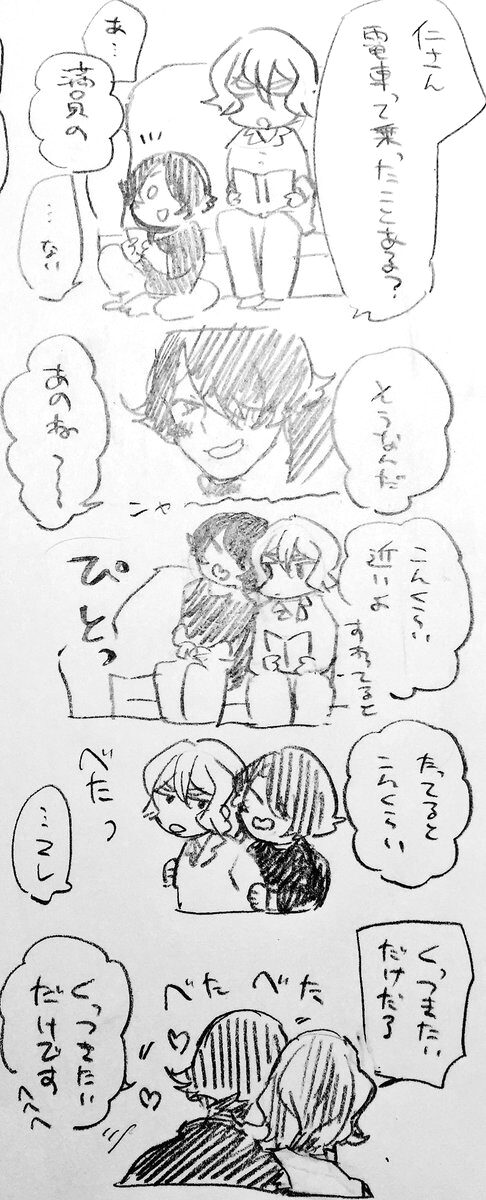 仁さん
電車って乗ったことある?
あ…
満員の
…ない
そうなんだ
あのね〜
ニャ〜
こんくらい
近いよ
すわってると
ぴとっ
たってると
こんくらい
べたっ
くっつきたい
だけだろ
べたべた
くっつきたい
だけです
へへへ